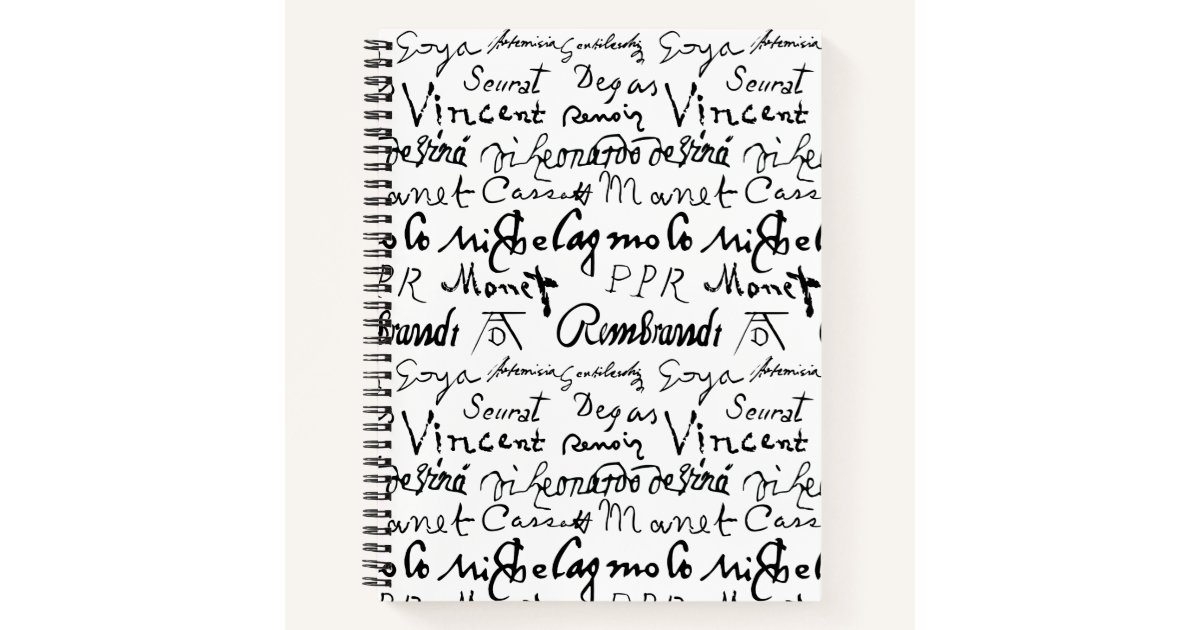 Goya Artemisia Gentileschi Goya Artemisia
Seurat Degas Seurat
Vincent Renoir Vincent
Leonardo
anet Cassatt Manet Cass
olo Michelagniolo Michel
PR Monet PPR Monet
brandt AD Rembrandt AD
Goya Artemisia Gentileschi Goya Artemisia
Seurat Degas Seurat
Vincent Renoir Vincent
Leonardo
anet Cassatt Manet Cass
olo Michelagniolo Michel